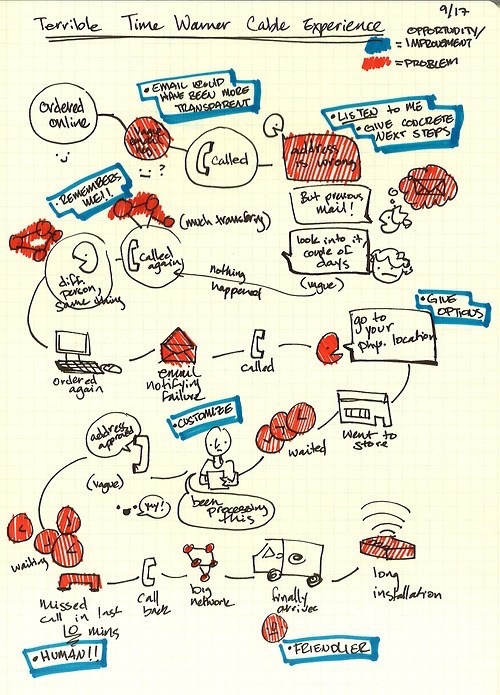 Terrible Time Warner Cable Experience
9/17
OPPORTUNITY/
= IMPROVEMENT
= PROBLEM
• EMAIL WOULD
HAVE BEEN MORE
TRANSPARENT
• LISTEN TO ME
• GIVE CONCRETE
NEXT STEPS
ordered
online
vague
?
Called
address
is wrong
• REMEMBERS
ME!!
(much transfering)
But previous
mail!
look into it
couple of
days
(vague)
Called
again
diff.
person,
same thing
nothing
happened
• GIVE
OPTIONS
go to
your
phys. location
ordered
again
email
notifying
failure
called
• CUSTOMIZE
waited
went to
store
address
approved
(vague)
yay!
been
processing
this
waiting
missed
call in last
10 mins
call
back
big
network
finally
arrives
long
installation
• HUMAN!!
• FRIENDLIER